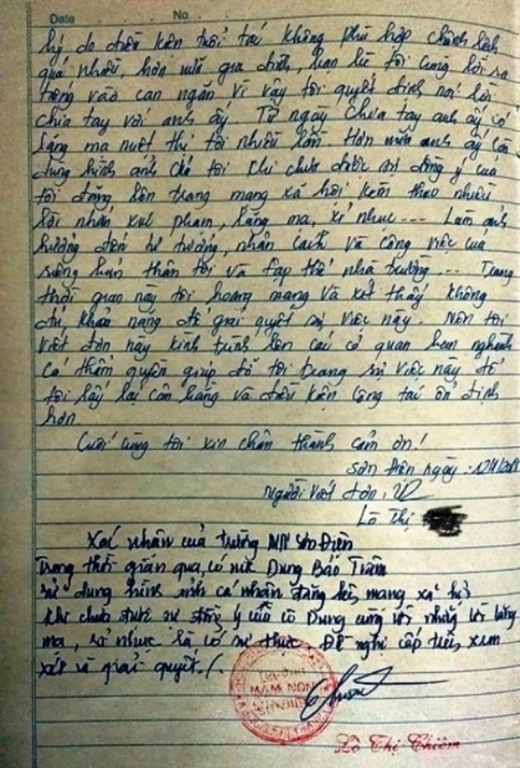 Date No
lý do điều kiện tuổi tác không phù hợp chênh lệch
quá nhiều, hơn nữa gia đình, bạn bè tôi cũng
vào can ngăn vì vậy tôi quyết định nói lời
chia tay với anh ấy. Từ ngày chia tay anh ấy có
lăng mạ tôi nhiều lần. Hơn nữa anh ấy còn
dùng hình ảnh của tôi khi chưa được sự đồng ý của
tôi đăng lên trang mạng xã hội kèm theo nhiều
lời nhắn xúc phạm, lăng mạ, xỉ nhục --- Làm ảnh
hưởng đến tư tưởng, nhân cách và công việc của
bản thân tôi và tập thể nhà trường ... Trong
thời gian này tôi hoang mang và xét thấy không
đủ khả năng để giải quyết sự việc này. Nên tôi
viết đơn này kính trình lên các cơ quan ban nghành
có thẩm quyền giúp đỡ tôi trong sự việc này để
tôi lấy lại cân bằng và điều kiện công tác ổn định
hơn
Cuối cùng tôi xin chân thành cảm ơn!
Sơn Điện ngày
Người viết đơn
Lò Thị
Xác nhận của trường MN Sơn Điện
Trong thời gian qua, có nick Dung Bảo Trâm
sử dụng hình ảnh cá nhân đăng lên mạng xã hội
khi chưa được sự đồng ý của cô Dung cùng với những lời lăng
mạ, sỉ nhục là có sự thực. Đề nghị cấp trên xem
xét và giải quyết./.
MẦM NON
Lò Thị Chiêm